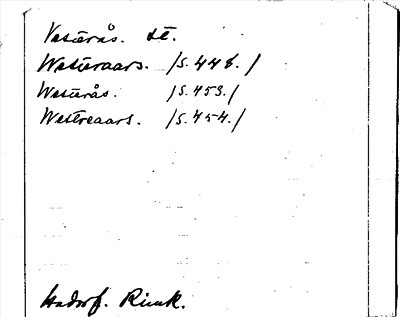 Västerås. st.
Westeraars. /S. 448./
Westerås. /S. 453./
Westreaars. /S. 454./
Hadorf. Rimk.